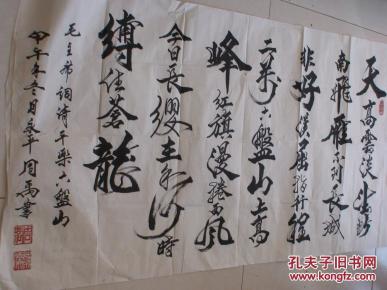 天高雲淡望断
南飛雁不到長城
非好漢屈指行程
二萬六盤山上高
峰红旗漫捲西风
今日長缨在手何時
縛住蒼龍
毛主席词清平樂六盤山
甲午年冬月 周
孔夫子旧书网